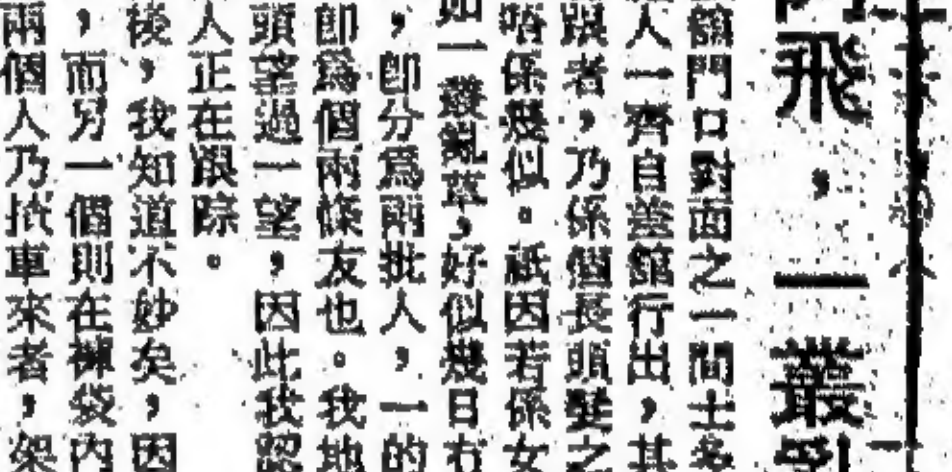 飛，一叢
館門口對面之一間士多
人一齊自差館行出，其
跟者，乃係個長頭髮之
唔係幾似。祗因若係女
如一叢亂草，好似幾日冇
，卽分爲兩批人，一的
卽爲個兩條友也。我地
頭望過一望，因此我認
人正在跟踪。
後，我知道不妙矣，因
，而另一個則在褲袋內
兩個人乃揸車來者，架